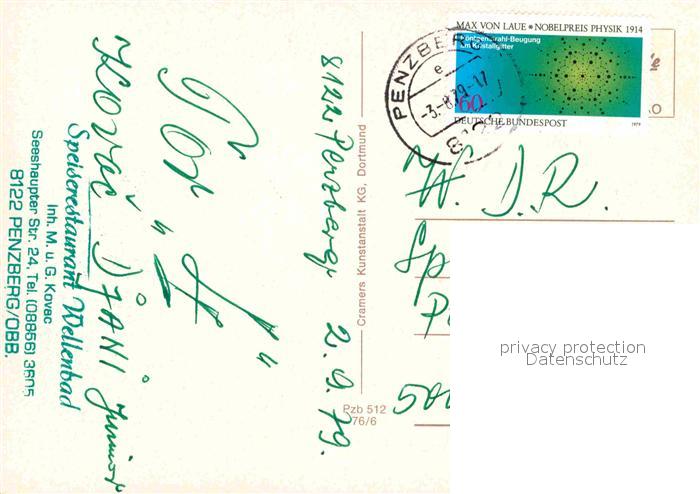 8122 Penzberg 2.9.79.
"Tor II"
Kovač DJANI Junior
Speiserestaurant Wellenbad
Inh. M. u. G. Kovac
Seeshaupter Str. 24, Tel. (08856) 3805
8122 PENZBERG/OBB.
Cramers Kunstanstalt KG, Dortmund
Pzb 512
76/6
MAX VON LAUE * NOBELPREIS PHYSIK 1914
Röntgenstrahl-Beugung
am Kristallgitter
60
DEUTSCHE BUNDESPOST
1979
PENZBERG
e
-3.-8.79-17
W. D. R.
Sp
P
50
privacy protection
Datenschutz